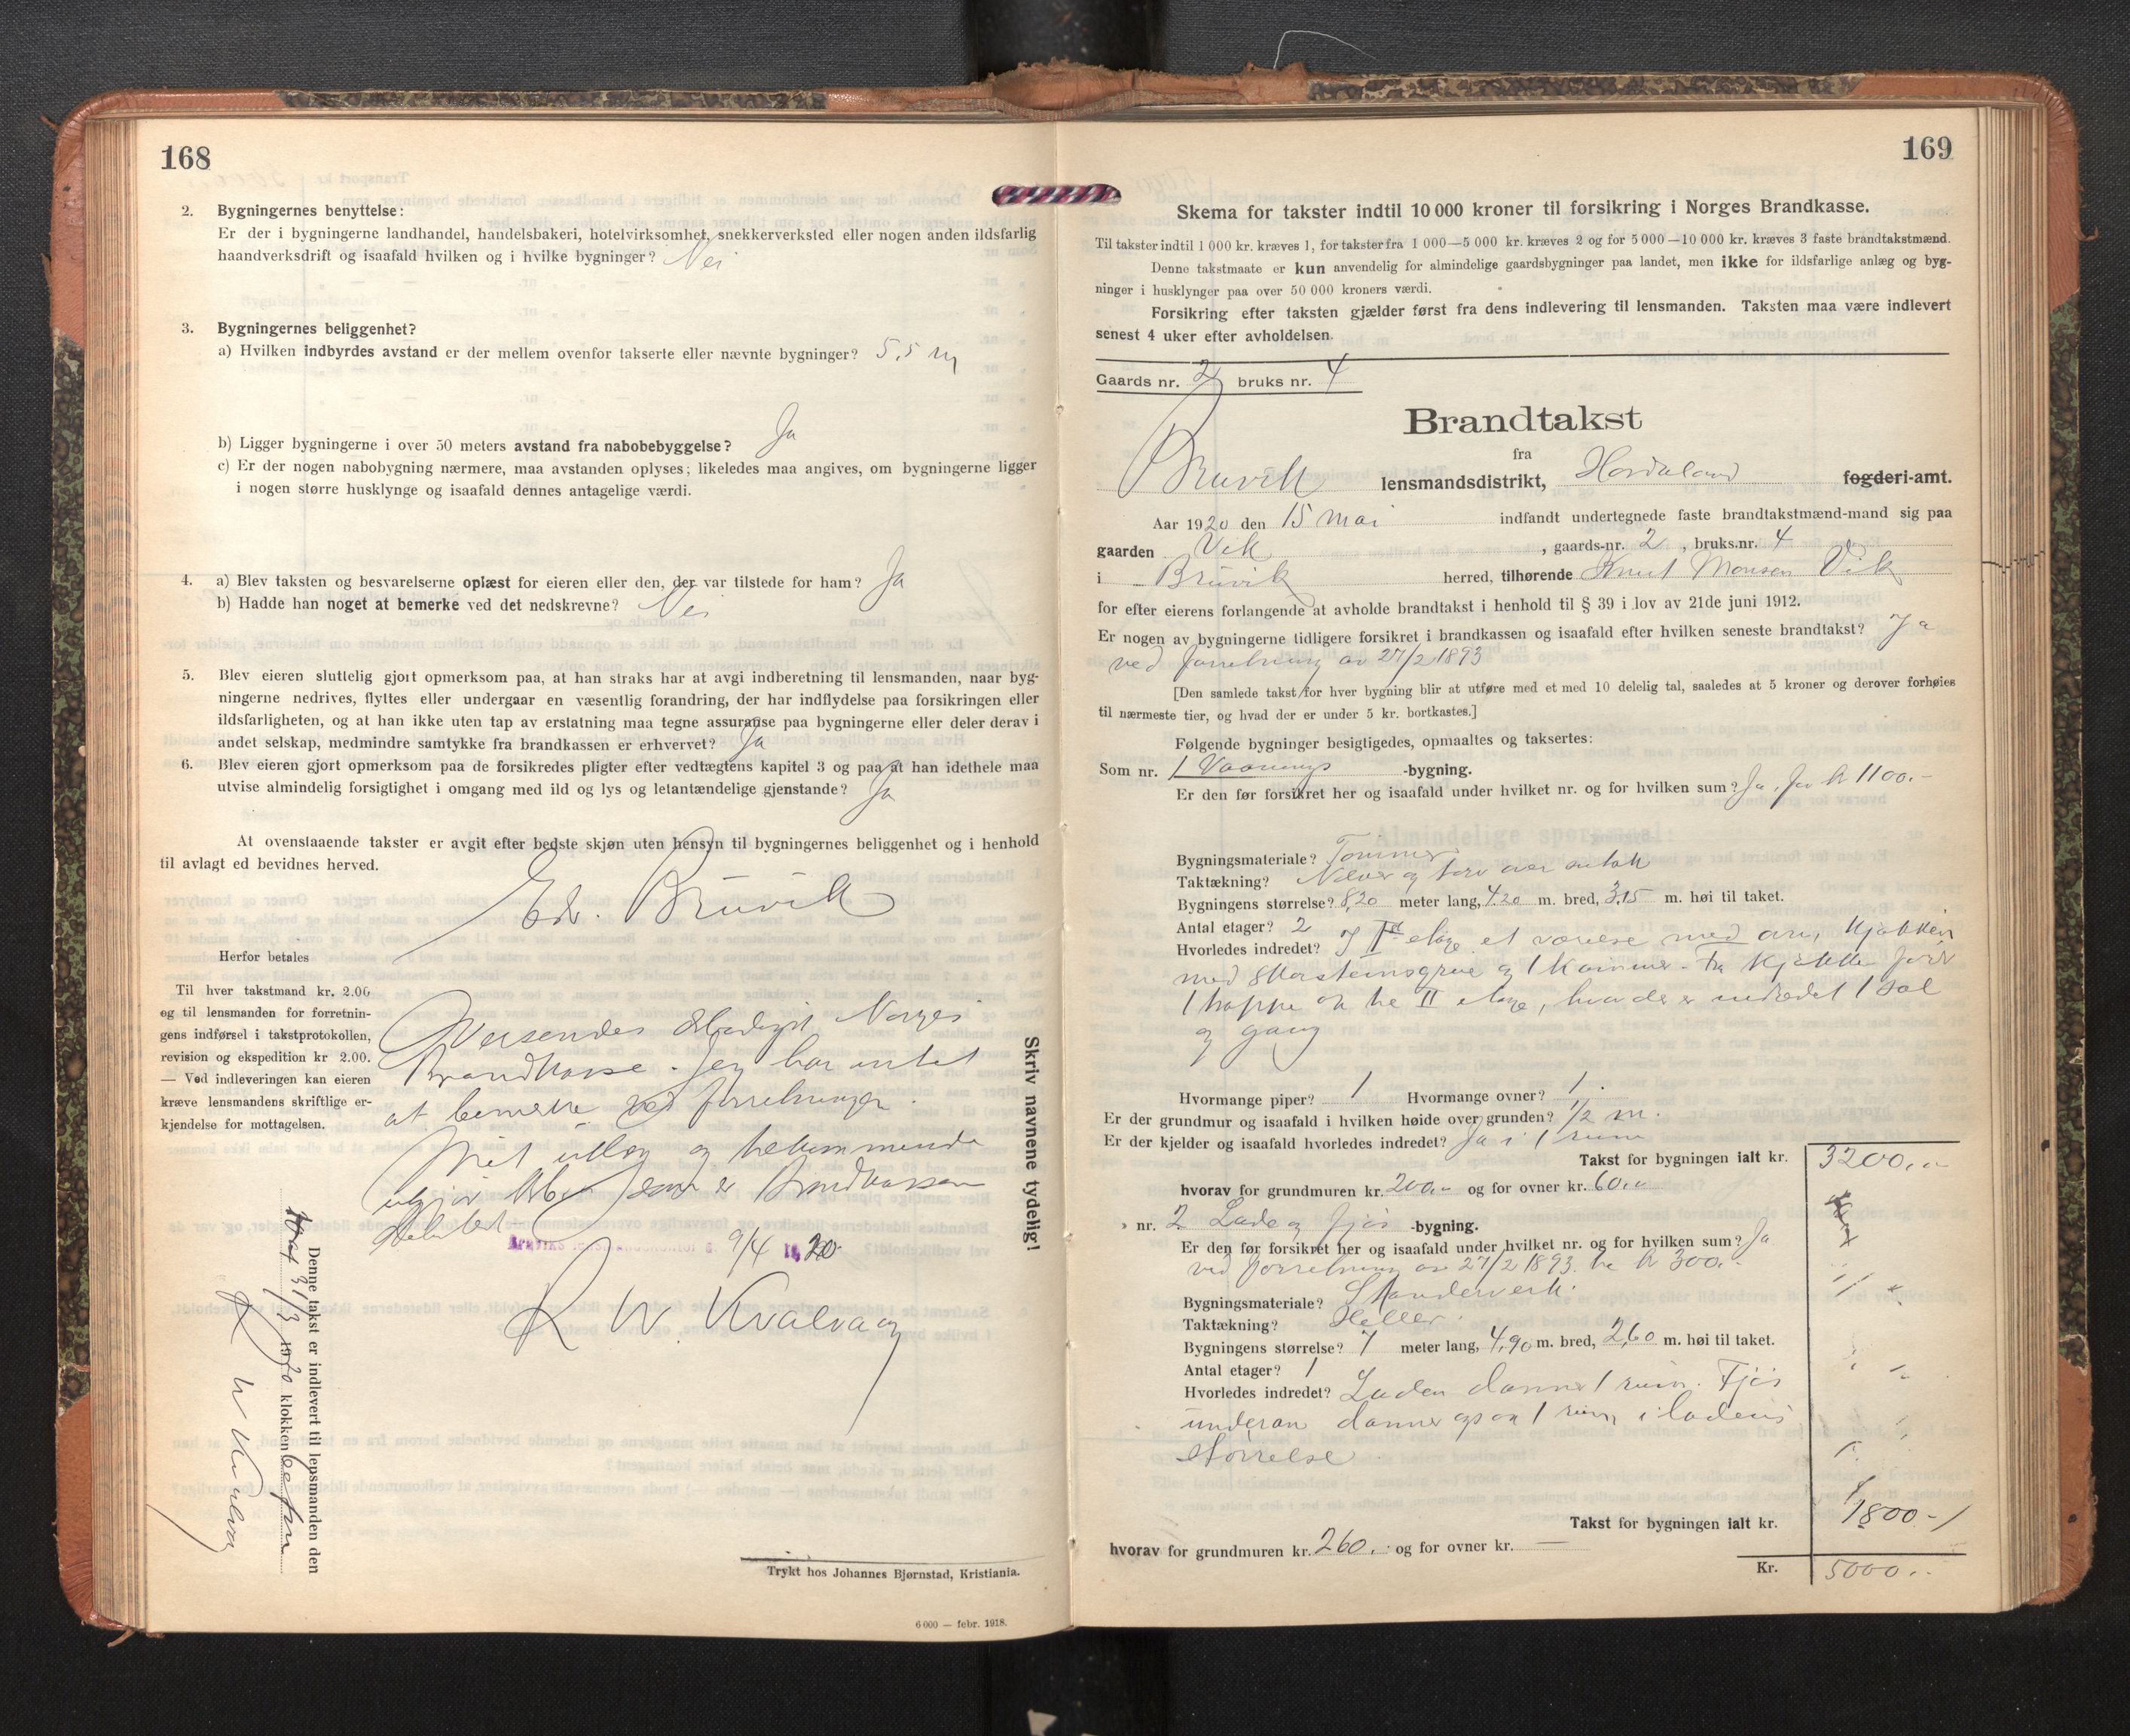 168
2. Bygningernes benyttelse:
Er der i bygningerne landhandel, handelsbakeri, hotelvirksomhet, snekkerverksted eller nogen anden ildsfarlig
haandverksdrift og isaafald hvilken og i hvilke bygninger? Nei
3. Bygningernes beliggenhet?
a) Hvilken indbyrdes avstand er der mellem ovenfor takserte eller nævnte bygninger? 5,5 m
b) Ligger bygningerne i over 50 meters avstand fra nabobebyggelse? Ja
c) Er der nogen nabobygning nærmere, maa avstanden oplyses; likeledes maa angives, om bygningerne ligger
i nogen større husklynge og isaafald dennes antagelige værdi.
4. a) Blev taksten og besvarelserne oplæst for eieren eller den, der var tilstede for ham? Ja
b) Hadde han noget at bemerke ved det nedskrevne? Nei
5. Blev eieren sluttelig gjort opmerksom paa, at han straks har at avgi indberetning til lensmanden, naar byg-
ningerne nedrives, flyttes eller undergaar en væsentlig forandring, der har indflydelse paa forsikringen eller
ildsfarligheten, og at han ikke uten tap av erstatning maa tegne assuranse paa bygningerne eller deler derav i
andet selskap, medmindre samtykke fra brandkassen er erhvervet? Ja
6. Blev eieren gjort opmerksom paa de forsikredes pligter efter vedtægtens kapitel 3 og paa at han idethele maa
utvise almindelig forsigtighet i omgang med ild og lys og letantændelige gjenstande? Ja
At ovenstaaende takster er avgit efter bedste skjøn uten hensyn til bygningernes beliggenhet og i henhold
til avlagt ed bevidnes herved.
Edv. Bruvik
Herfor betales
Til hver takstmand kr. 2.00
og til lensmanden for forretnin-
gens indførsel i takstprotokollen,
revision og ekspedition kr 2.00.
— Ved indleveringen kan eieren
kræve lensmandens skriftlige er-
kjendelse for mottagelsen.
Oversendes Norges
Brandkasse. Jeg har intet
at bemerke ved forretningen.
Mit utlæg og tilkommende
utgjør som er Brandkassen
debitert
9/4 1920
K W Kvalvaag
Skriv navnene tydelig!
Denne takst er indlevert til lensmanden den
31/3 1920 klokken
K W Kvalvaag
Trykt hos Johannes Bjørnstad, Kristiania.
6 000 — febr. 1918.
169
Skema for takster indtil 10 000 kroner til forsikring i Norges Brandkasse.
Til takster indtil 1 000 kr. kræves 1, for takster fra 1 000—5 000 kr. kræves 2 og for 5 000—10 000 kr. kræves 3 faste brandtakstmænd.
Denne takstmaate er kun anvendelig for almindelige gaardsbygninger paa landet, men ikke for ildsfarlige anlæg og byg-
ninger i husklynger paa over 50 000 kroners værdi.
Forsikring efter taksten gjælder først fra dens indlevering til lensmanden. Taksten maa være indlevert
senest 4 uker efter avholdelsen.
Gaards nr. 2 bruks nr. 4
Brandtakst
fra
Bruvik lensmandsdistrikt, Hordaland fogderi-amt.
Aar 1920 den 15 mai indfandt undertegnede faste brandtakstmænd-mand sig paa
gaarden Vik, gaards-nr. 2, bruks.nr. 4
i Bruvik herred, tilhørende Knut Monsen Vik
for efter eierens forlangende at avholde brandtakst i henhold til § 39 i lov av 21de juni 1912.
Er nogen av bygningerne tidligere forsikret i brandkassen og isaafald efter hvilken seneste brandtakst? Ja
ved forretning av 27/2 1893
[Den samlede takst for hver bygning blir at utføre med et med 10 delelig tal, saaledes at 5 kroner og derover forhøies
til nærmeste tier, og hvad der er under 5 kr. bortkastes.]
Følgende bygninger besigtigedes, opmaaltes og taksertes:
Som nr. 1 Vaanings -bygning.
Er den før forsikret her og isaafald under hvilket nr. og for hvilken sum? Ja, for kr 1100.-
Bygningsmateriale? Tømmer
Taktækning? Næver og torv over
Bygningens størrelse? 8,20 meter lang, 4.20 m. bred, 3,15 m. høi til taket.
Antal etager? 2
Hvorledes indredet? I I etage et værelse med ovn, kjøkken
med skorstensgrue og 1 kammer. Fra kjøkken fører
1 trappe op til II etage, hvor der er indredet 1 sal
og gang
Hvormange piper? 1 Hvormange ovner? 1.
Er der grundmur og isaafald i hvilken høide over grunden? 1/2 m.
Er der kjelder og isaafald hvorledes indredet? Ja i 1 rum
Takst for bygningen ialt kr. 3200.-
hvorav for grundmuren kr. 200.- og for ovner kr. 60.-
» nr. 2 Lade og fjøs -bygning.
Er den før forsikret her og isaafald under hvilket nr. og for hvilken sum? Ja
ved forretning av 27/2 1893. kr 300.-
Bygningsmateriale? Standerverk.
Taktækning? Heller.
Bygningens størrelse? 7 meter lang, 4,90 m. bred, 2,60 m. høi til taket.
Antal etager? 1
Hvorledes indredet? Laden danner 1 rum. Fjøs
under danner ogsaa 1 rum i ladens
størrelse
Takst for bygningen ialt kr. 1800-
hvorav for grundmuren kr. 260.- og for ovner kr. —
Kr. 5000.-